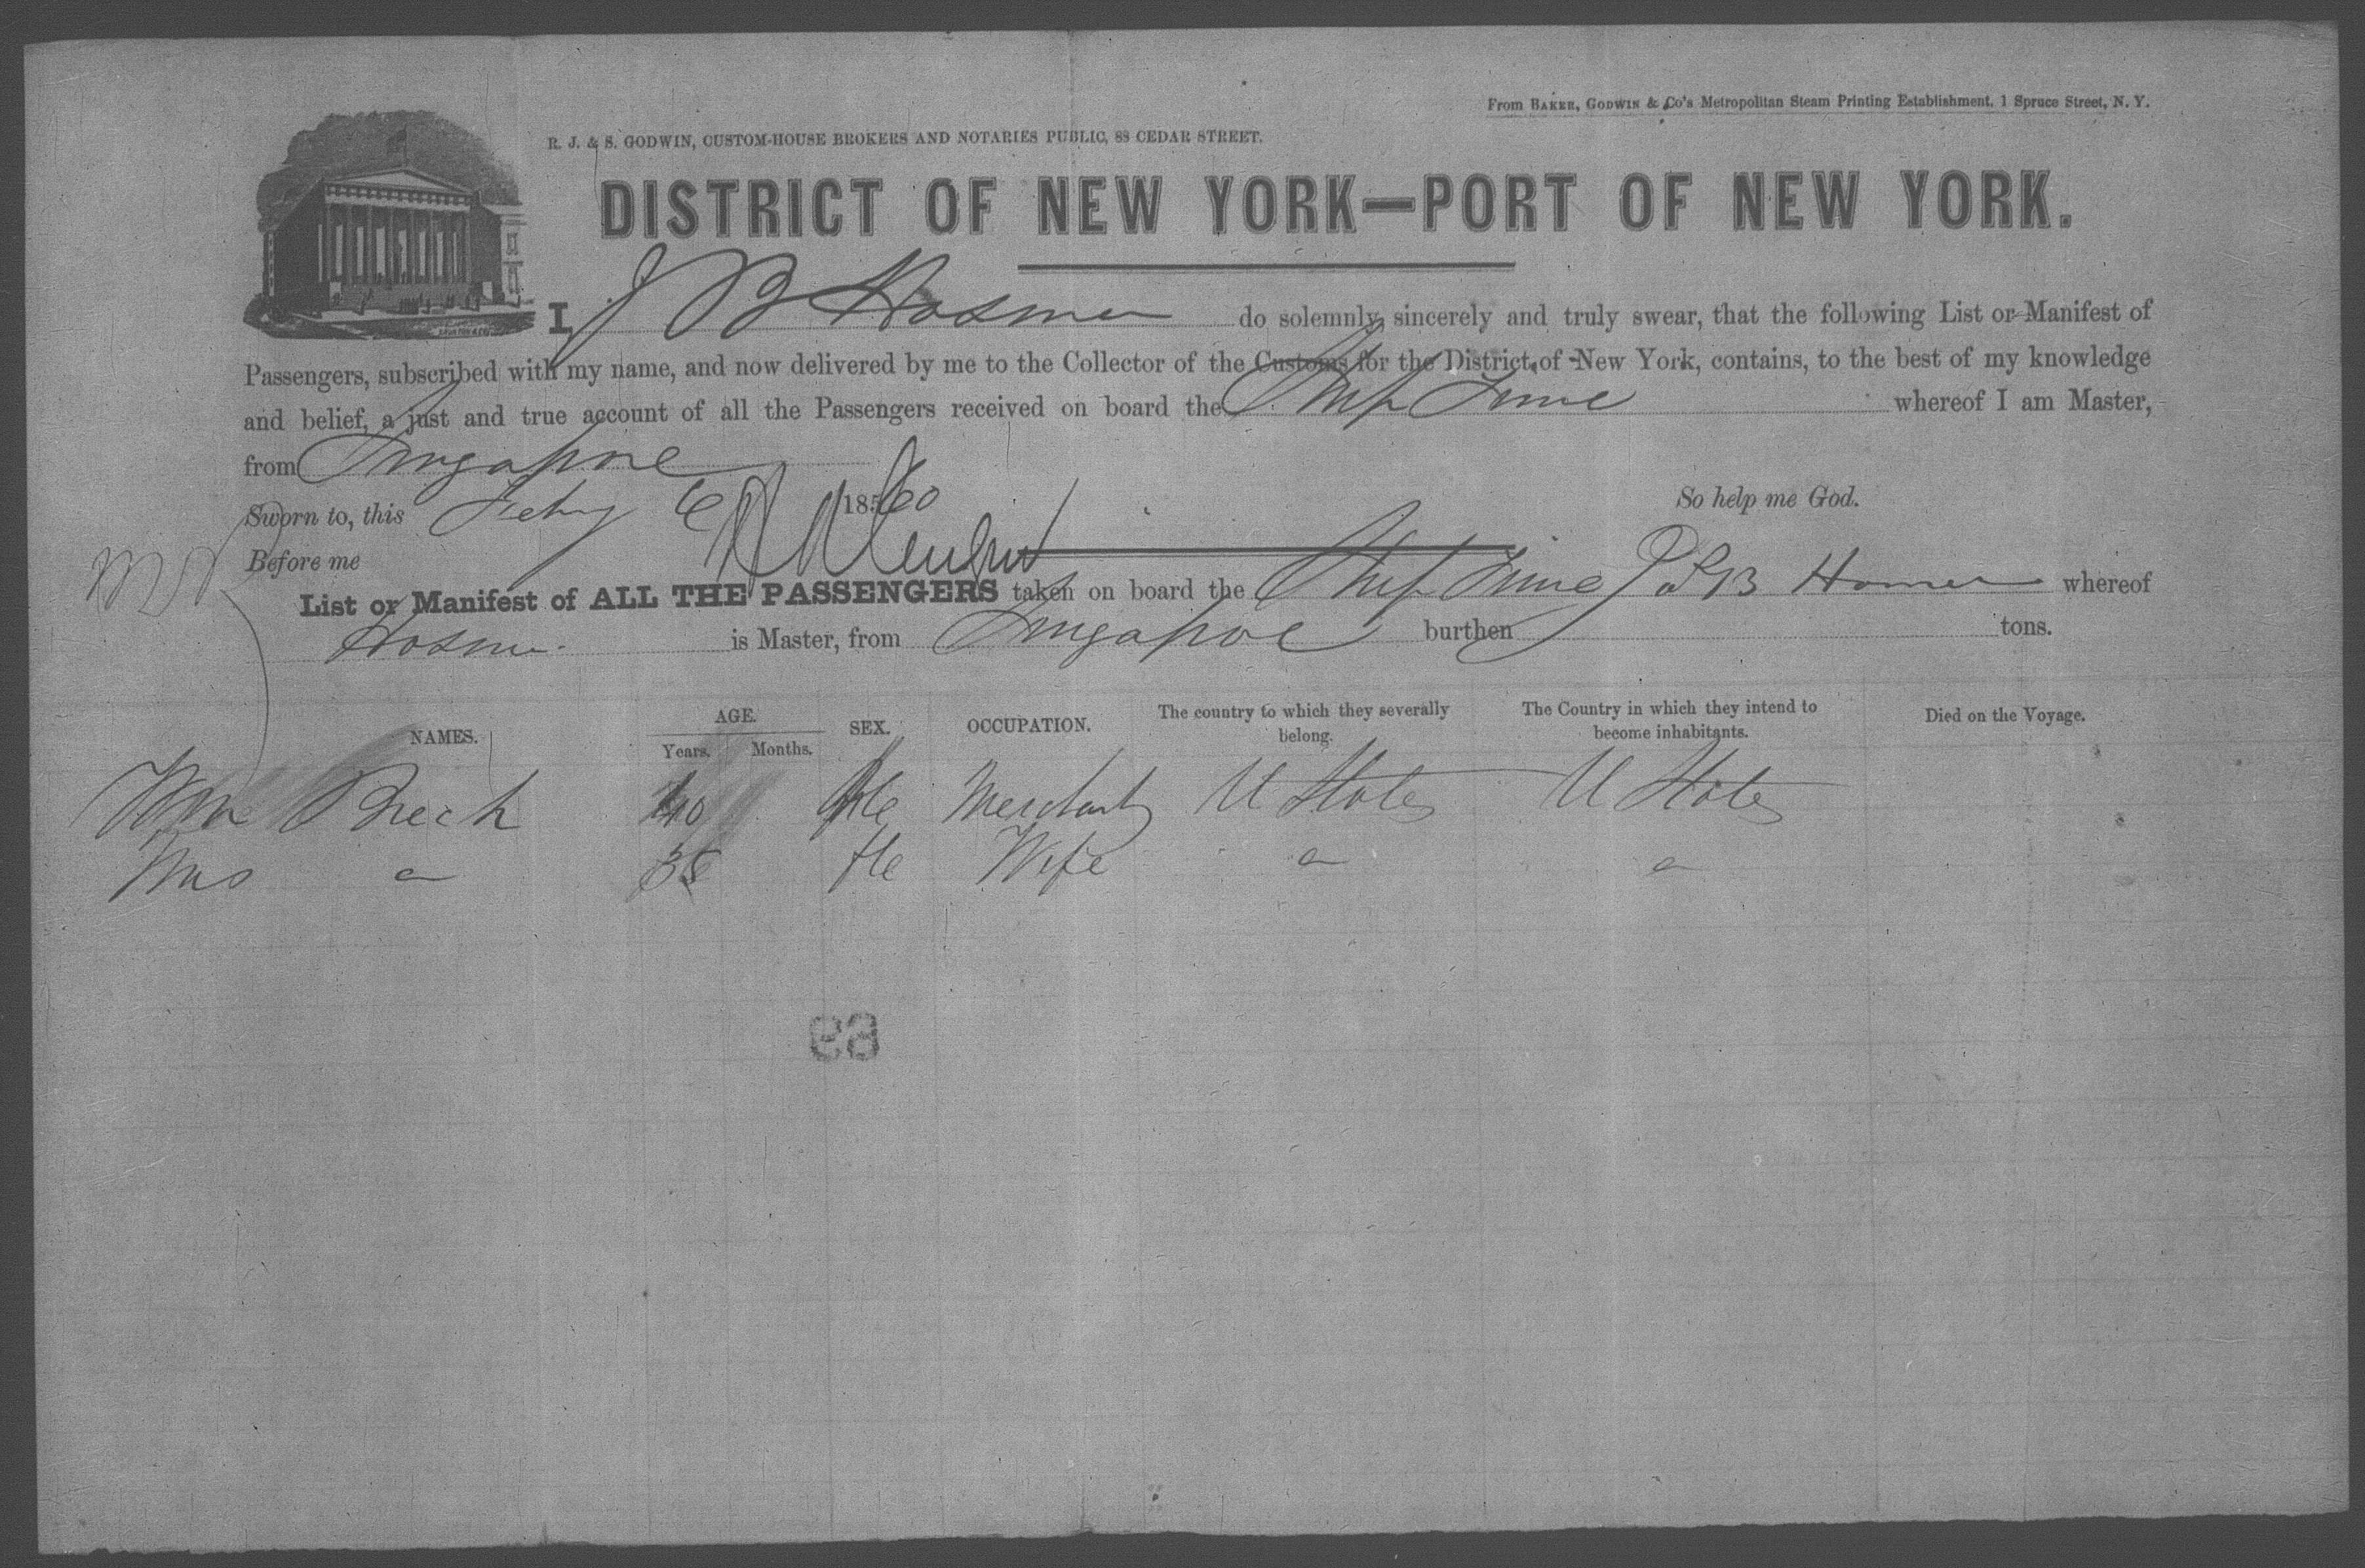 From BAKER, GODWIN & Co's Metropolitan Steam Printing Establishment, 1 Spruce Street, N. Y.
R. J. & S. GODWIN, CUSTOM-HOUSE BROKERS AND NOTARIES PUBLIC, 88 CEDAR STREET.
DISTRICT OF NEW YORK—PORT OF NEW YORK.
I, J B Hosmer do solemnly, sincerely and truly swear, that the following List or Manifest of
Passengers, subscribed with my name, and now delivered by me to the Collector of the Customs for the District of New York, contains, to the best of my knowledge
and belief, a just and true account of all the Passengers received on board the Ship whereof I am Master,
from Singapore
Sworn to, this Feby 6 1860 So help me God.
Before me
List or Manifest of ALL THE PASSENGERS taken on board the Ship whereof
Hosmer is Master, from Singapore burthen tons.
NAMES. AGE. Years. Months. SEX. OCCUPATION. The country to which they severally belong. The Country in which they intend to become inhabitants. Died on the Voyage.
Wm Beech 40 Me Merchant U States U States
Mrs " 35 Fe Wife " "
69